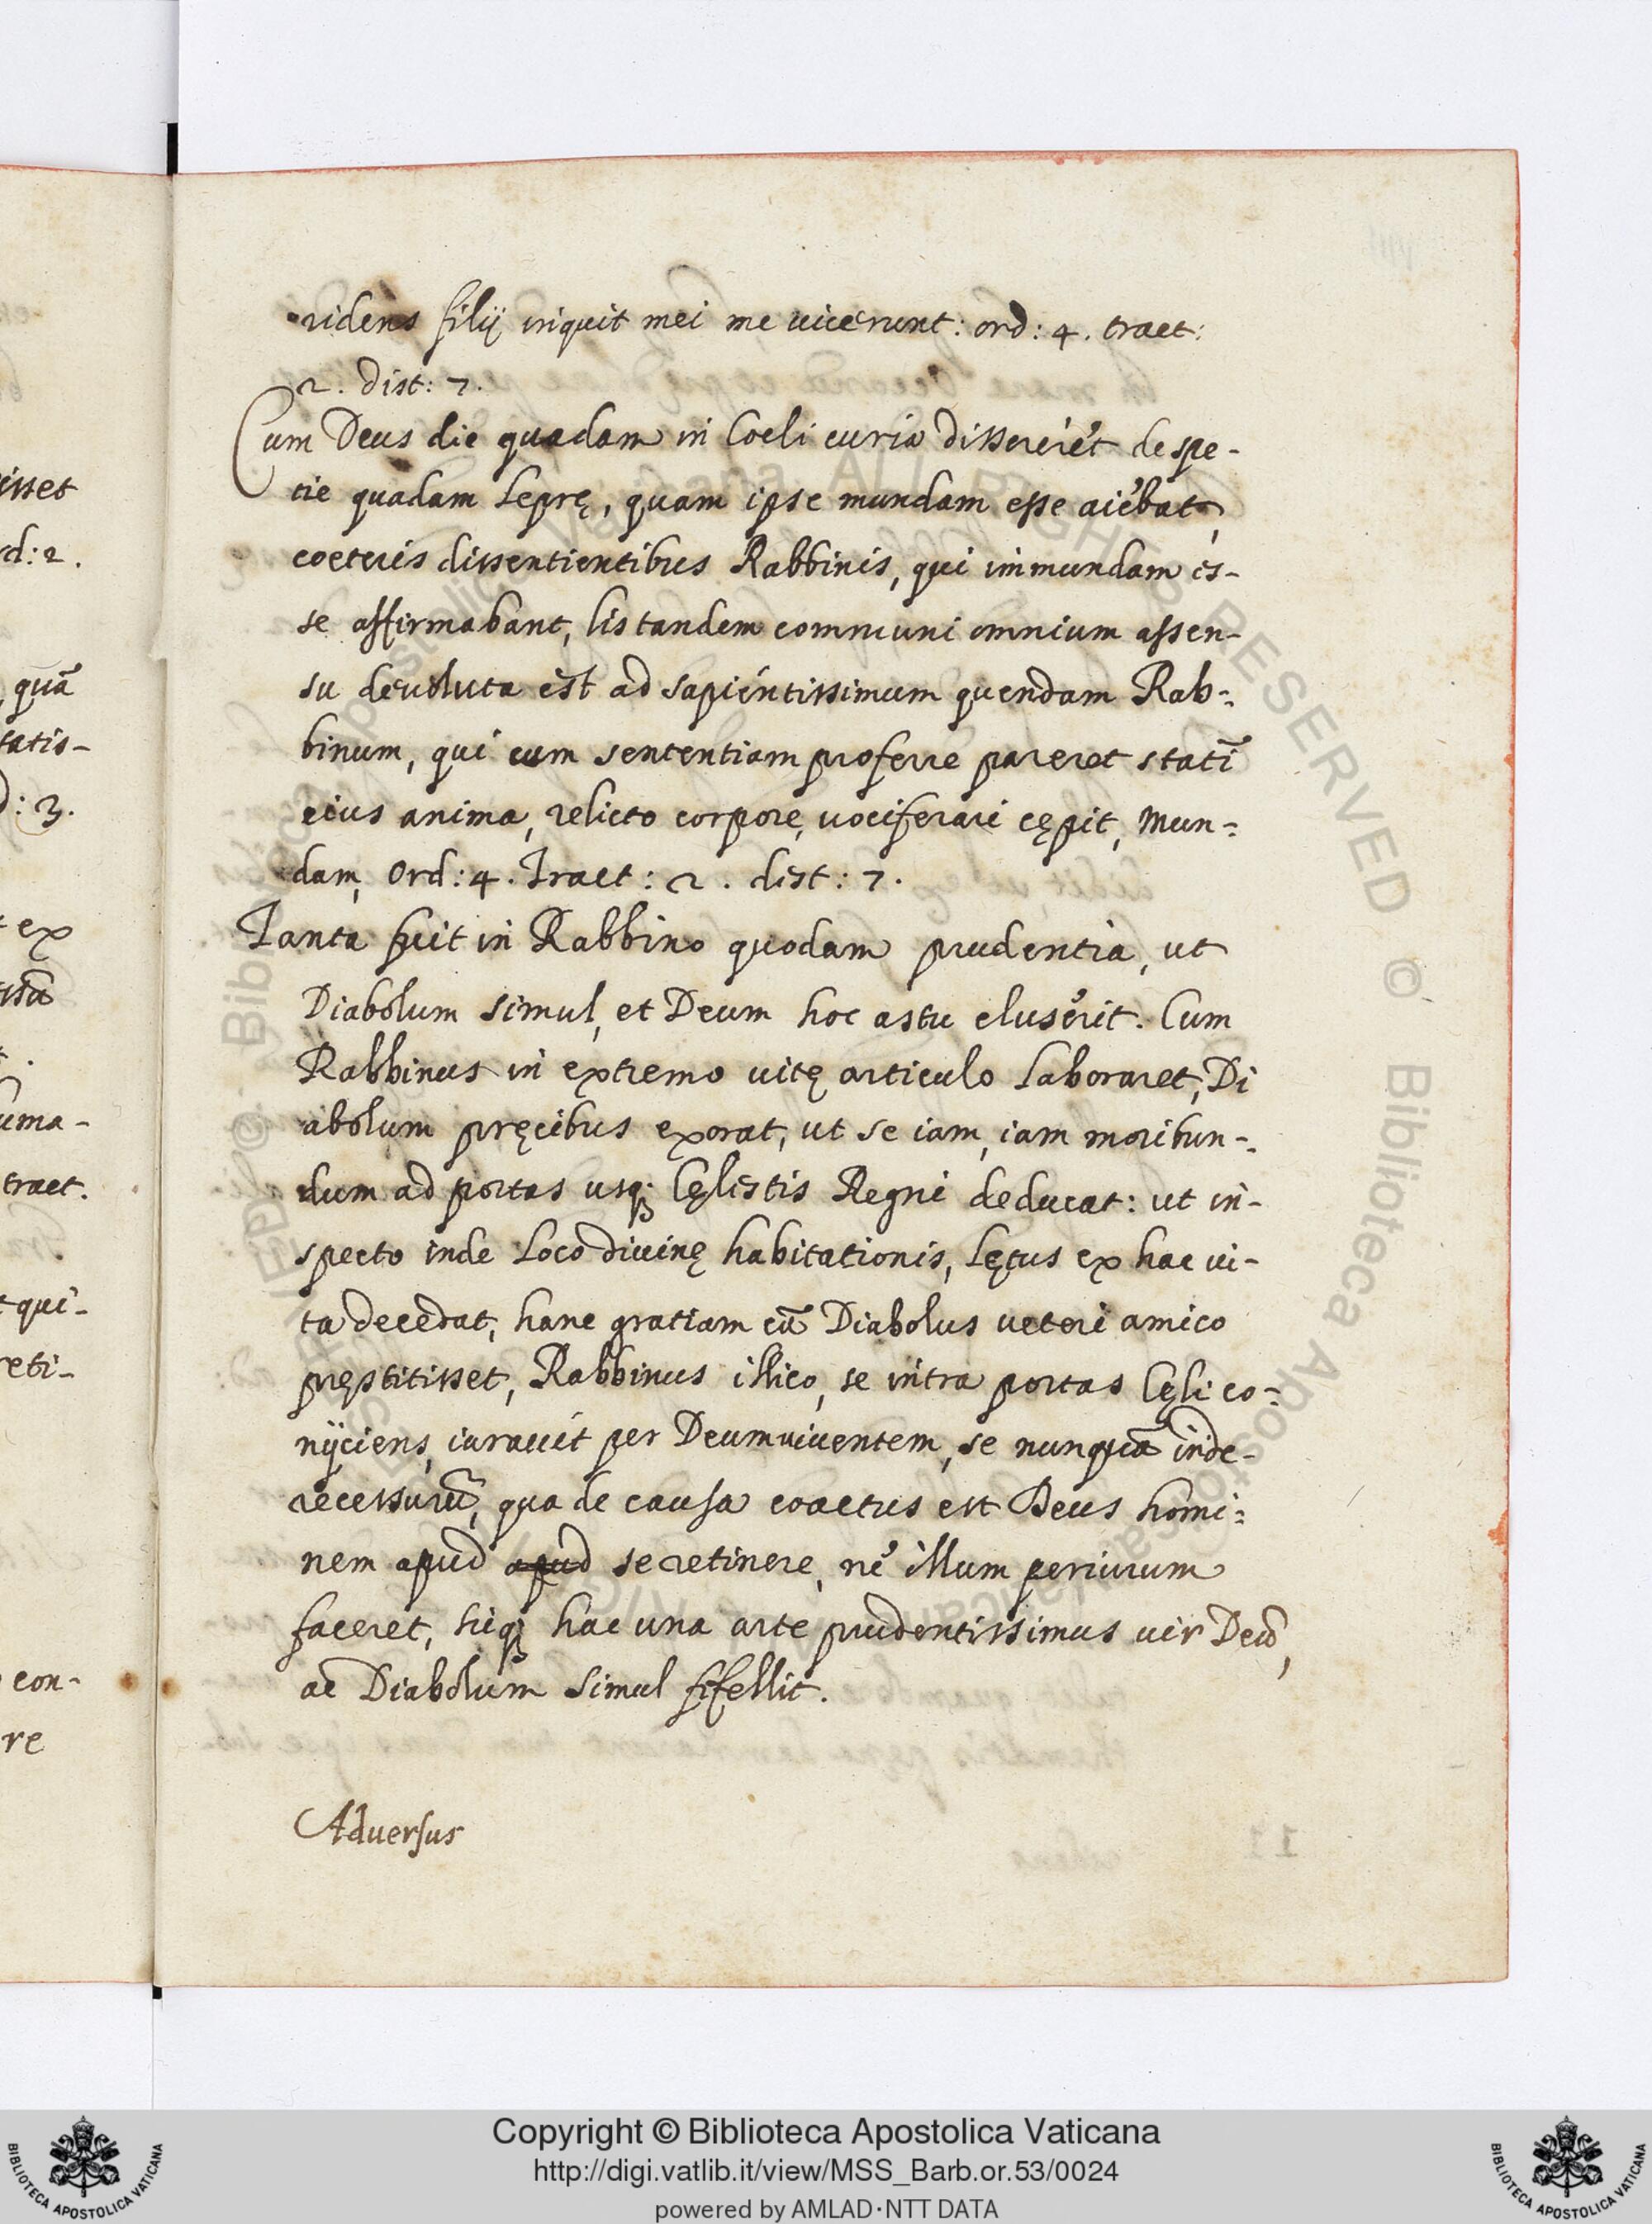 ridens filij inquit mei me uicerunt: ord: 4. tract:
2. dist: 7.
Cum Deus die quadam in Coeli curia dissereret de spe-
tie quadam Leprę, quam ipse mundam esse aiebat,
coeteris dissentientibus Rabbinis, qui immundam es-
se affirmabant, lis tandem communi omnium assen-
su deuoluta est ad sapientissimum quendam Rab-
binum, qui cum sententiam proferre pareret statĩ
eius anima, relicto corpore, uociferari cępit, Mun-
dam, Ord: 4. Tract: 2. dist: 7.
Tanta fuit in Rabbino quodam prudentia, ut
Diabolum simul, et Deum hoc astu eluserit. Cum
Rabbinus in extremo uitę articulo laboraret, Di
abolum pręcibus exorat, ut se iam, iam moribun-
dum ad portas usq; Cęlistis Regni deducat: ut in-
specto inde Loco diuinę habitationis, Lętus ex hac ui-
ta decedat, hanc gratiam cũ Diabolus ueteri amico
pręstitisset, Rabbinus illico, se intra portas Cęli co-
nijciens, iurauit per Deum uiuentem, se nunquã inde-
recessurũ, qua de causa coactus est Deus homi-
nem apud apud se retinere, ne illum periurum
faceret, sicq; hac una arte prudentissimus uir Deũ,
ac Diabolum simul fefellit.
Aduersus
isset
rd: 2.
quã
tatis-
d: 3.
ex
uma-
tract.
t qui-
reti-
con-
re
Copyright © Biblioteca Apostolica Vaticana
http://digi.vatlib.it/view/MSS_Barb.or.53/0024
powered by AMLAD·NTT DATA
BIBLIOTECA APOSTOLICA VATICANA
BIBLIOTECA APOSTOLICA VATICANA